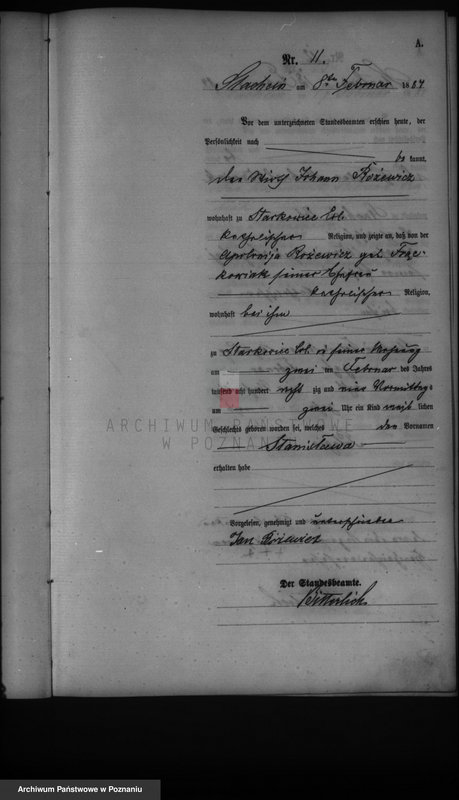 A.
Nr. 11.
am 8ten Februar 1884
Vor dem unterzeichneten Standesbeamten erschien heute, der
Persönlichkeit nach
be kannt,
der Wirth Johann Rożewicz
wohnhaft zu Starkowiec Col.
katholischer Religion, und zeigte an, daß von der
Apolonija Rożewicz geb.
seiner Ehefrau
katholischer Religion,
wohnhaft bei ihm
zu Starkowiec Col. in seiner Wohnung
am zwei ten Februar des Jahres
tausend acht hundert acht zig und vier Vormittags
um zwei Uhr ein Kind weib lichen
Geschlechts geboren worden sei, welches den Vornamen
Stanisława
erhalten habe
Vorgelesen, genehmigt und unterschrieben
Jan
Der Standesbeamte.
Bitterlich
ARCHIWUM PAŃSTWOWE
W POZNANIU
Archiwum Państwowe w Poznaniu